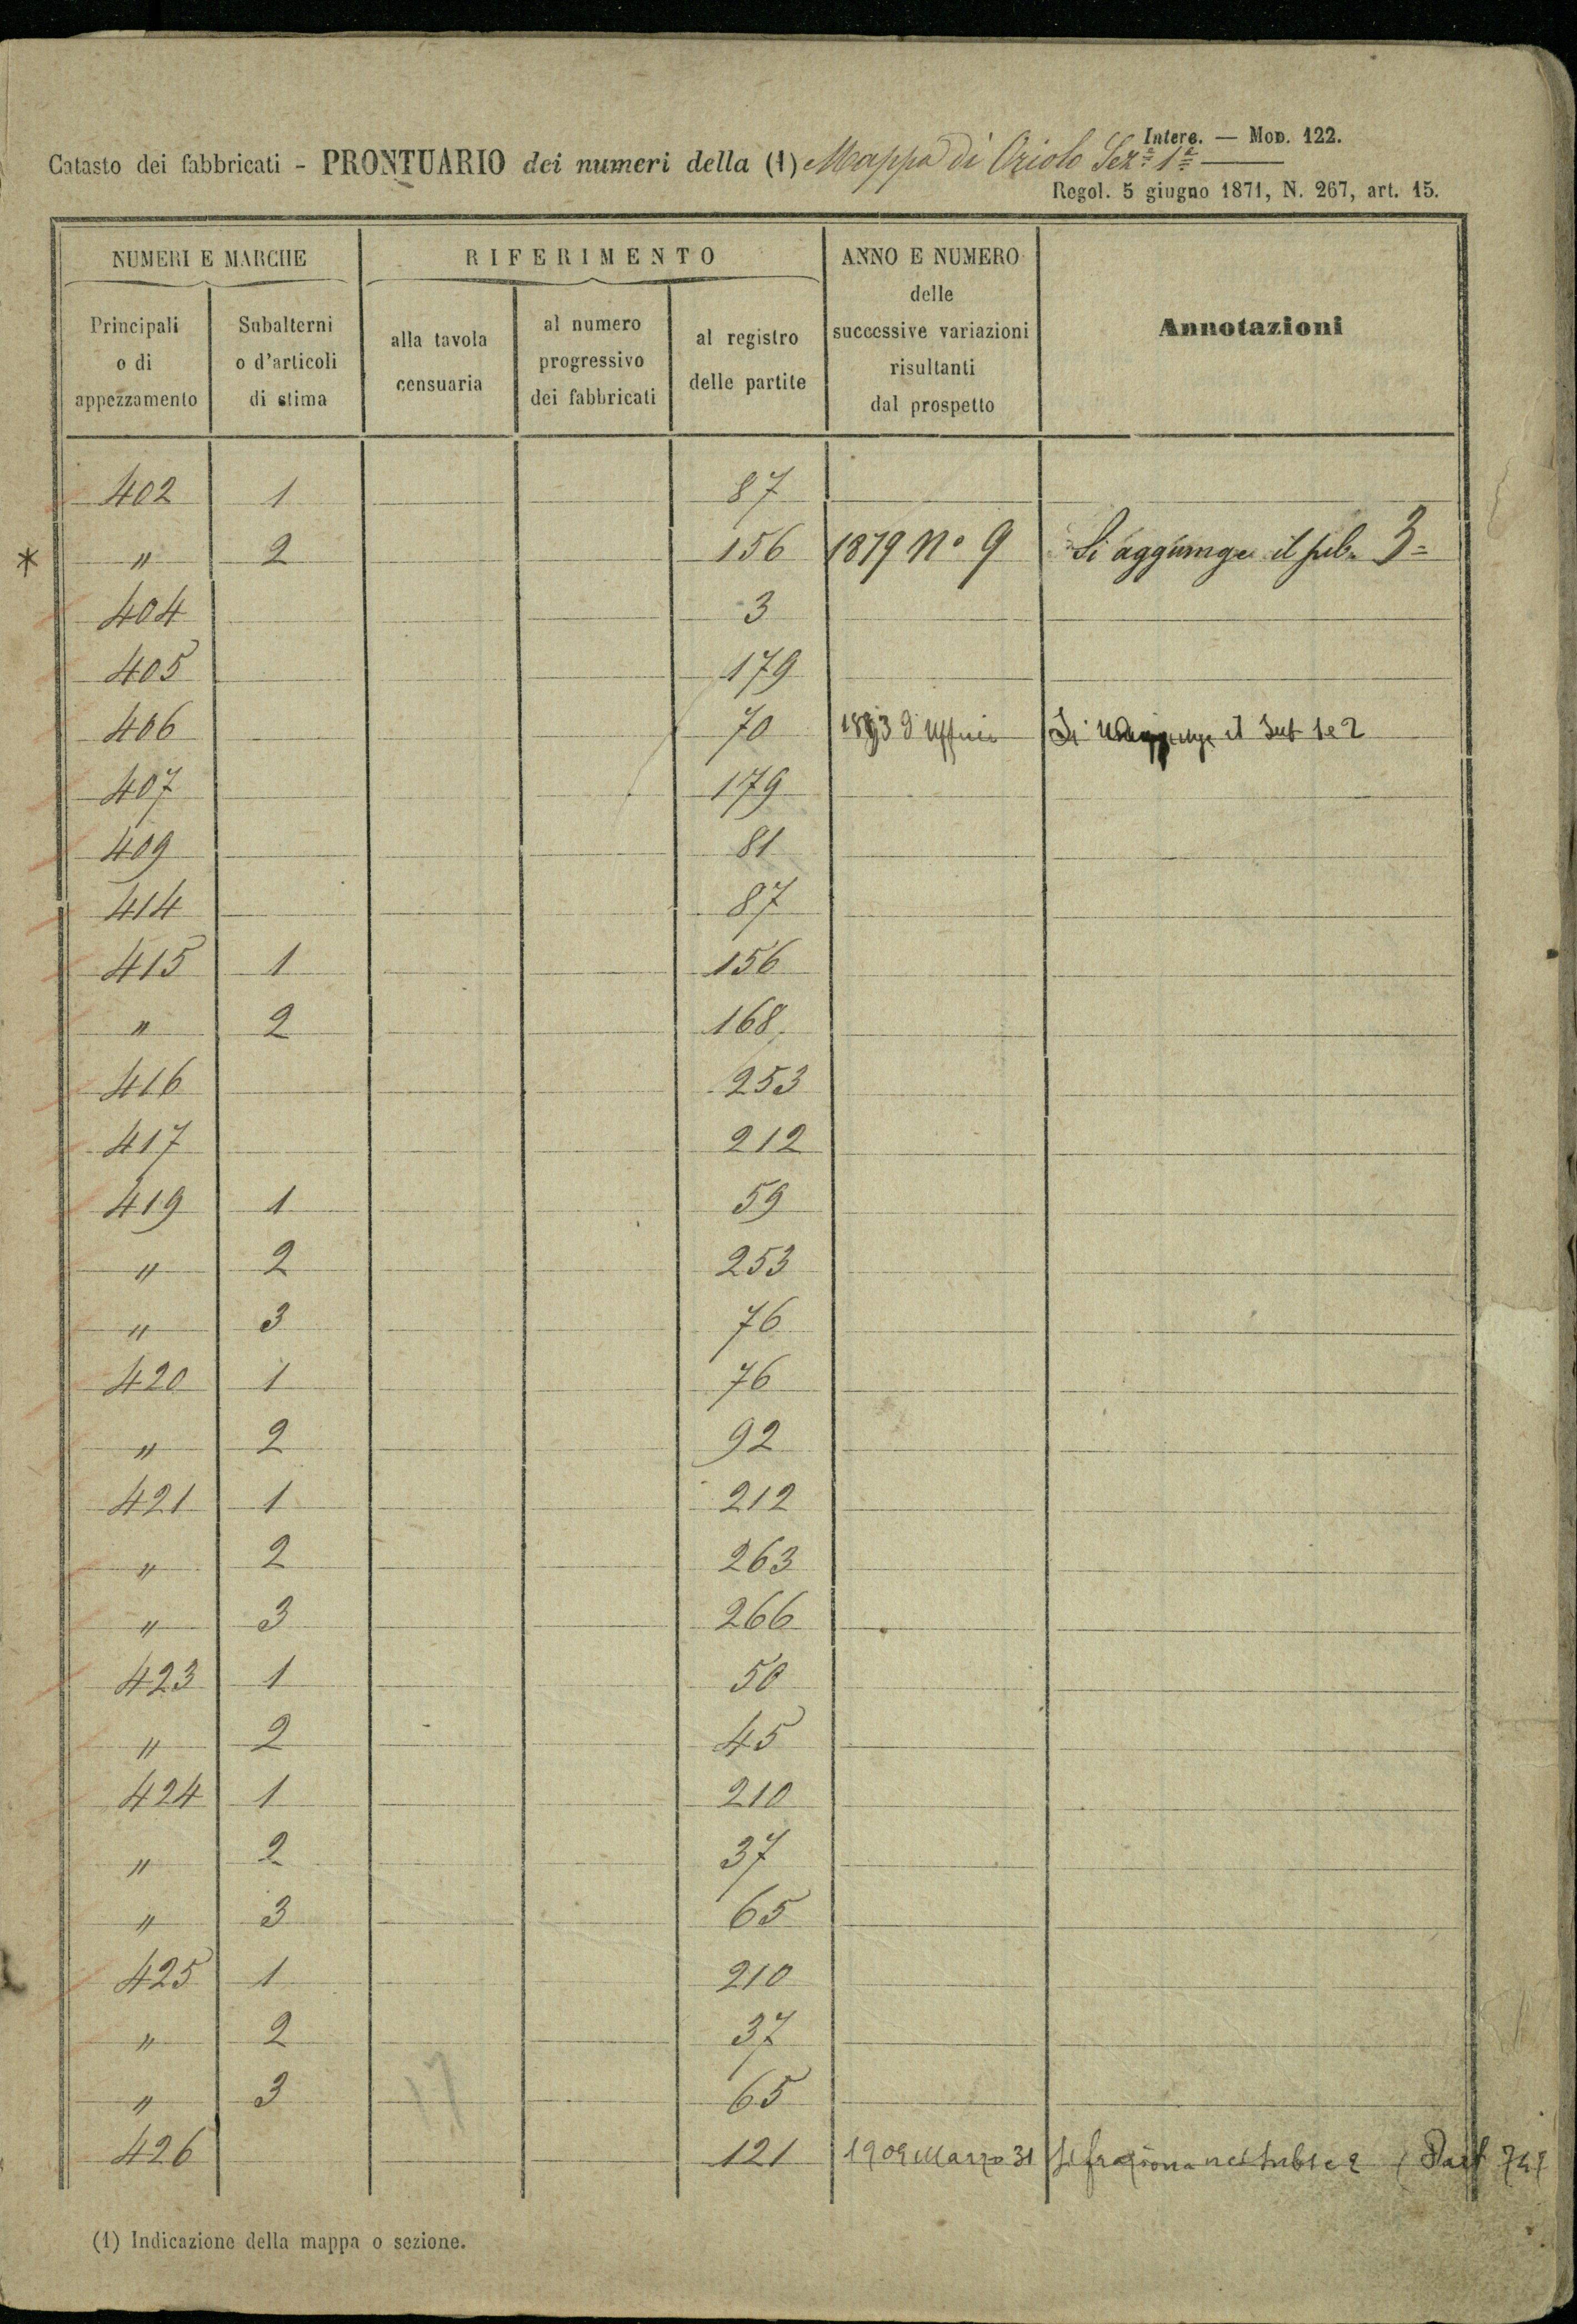 Interc. — Mod. 122.
Catasto dei fabbricati - PRONTUARIO dei numeri della (1) Mappa di Oriolo Sez.e 1a
Regol. 5 giugno 1871, N. 267, art. 15.
NUMERI E MARCHE
RIFERIMENTO
ANNO E NUMERO
delle
successive variazioni
risultanti
dal prospetto
Annotazioni
Principali
o di
appezzamento
Subalterni
o d'articoli
di stima
alla tavola
censuaria
al numero
progressivo
dei fabbricati
al registro
delle partite
402 1 87
* " 2 156 1879 No 9 Si aggiunge il sub. 3=
404 3
405 179
406 70 d'Uffici Si il Sub 1 e 2
407 179
409 81
414 87
415 1 156
" 2 168
416 253
417 212
419 1 59
" 2 253
" 3 76
420 1 76
" 2 92
421 1 212
" 2 263
" 3 266
423 1 50
" 2 45
424 1 210
" 2 37
" 3 65
425 1 210
" 2 37
" 3 65
17
426 121 1909 Marzo 31 Si fraziona nei sub 1 e 2 Part
(1) Indicazione della mappa o sezione.